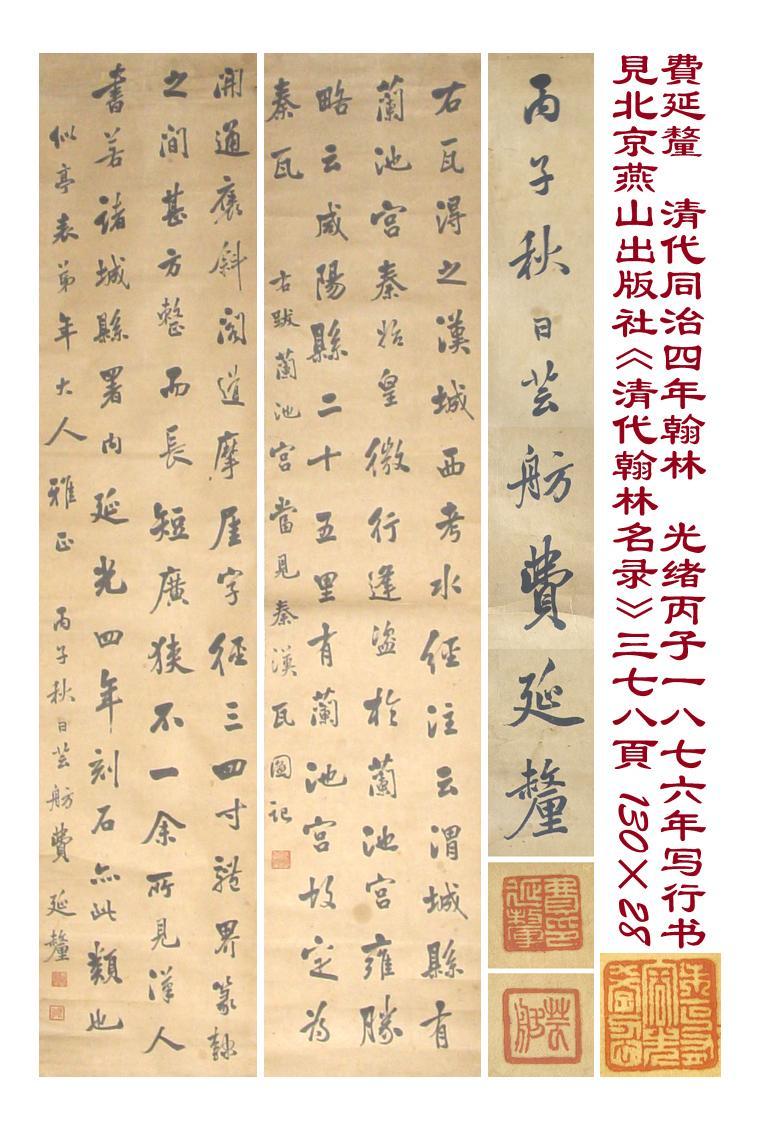 費延釐　清代同治四年翰林　光绪丙子一八七六年写行书
見北京燕山出版社《清代翰林名录》三七八頁 130×28
丙子秋日芸舫費延釐
右瓦得之漢城西考水經注云渭城縣有
蘭池宮秦始皇微行逢盜於蘭池宮雍勝
略云咸陽縣二十五里有蘭池宮故定為
秦瓦
右跋蘭池宮當見秦漢瓦圖記
開通褒斜閣道摩厓字徑三四寸體界篆隸
之間甚方整而長短廣狹不一余所見漢人
書若諸城縣署內延光四年刻石亦此類也
似亭表弟年大人雅正
丙子秋日芸舫費延釐
費印延釐
芸舫